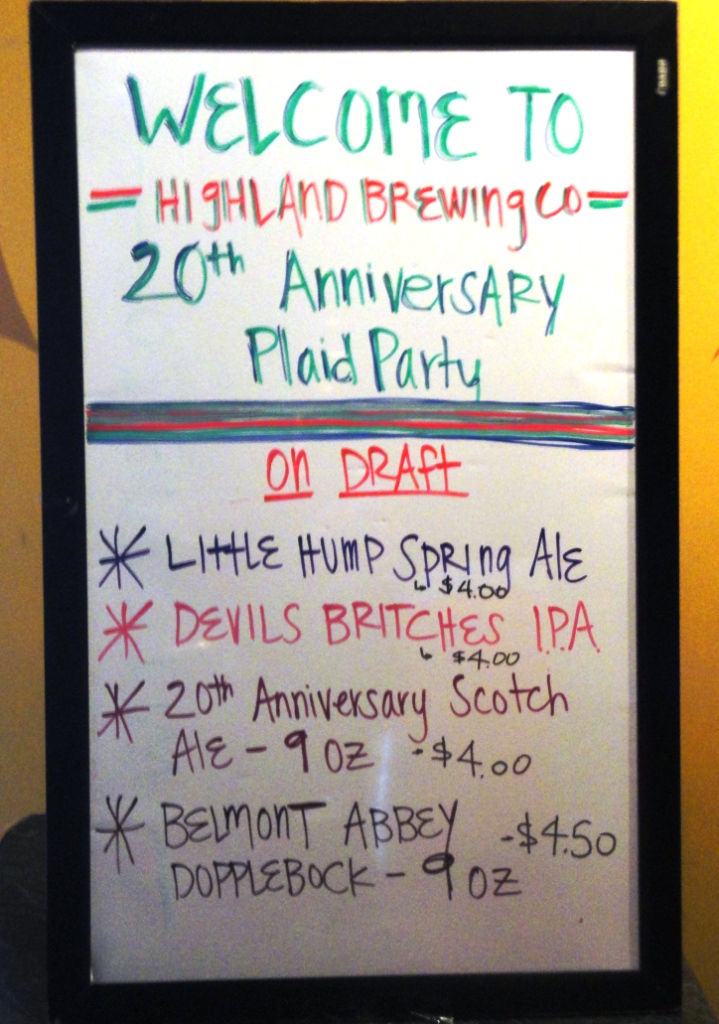 WELCOME TO
= HIgHLAND BREWINg CO =
20th AnniversARY
Plaid Party
On DRAFt
* LittLE HUMP SpRINg ALE
↳ $4.00
* DEVILS BRITCHES I.P.A
↳ $4.00
* 20th Anniversary Scotch
ALE - 9 OZ - $4.00
* BELMONT ABBEY - $4.50
DOPPLEBOCK - 9 OZ